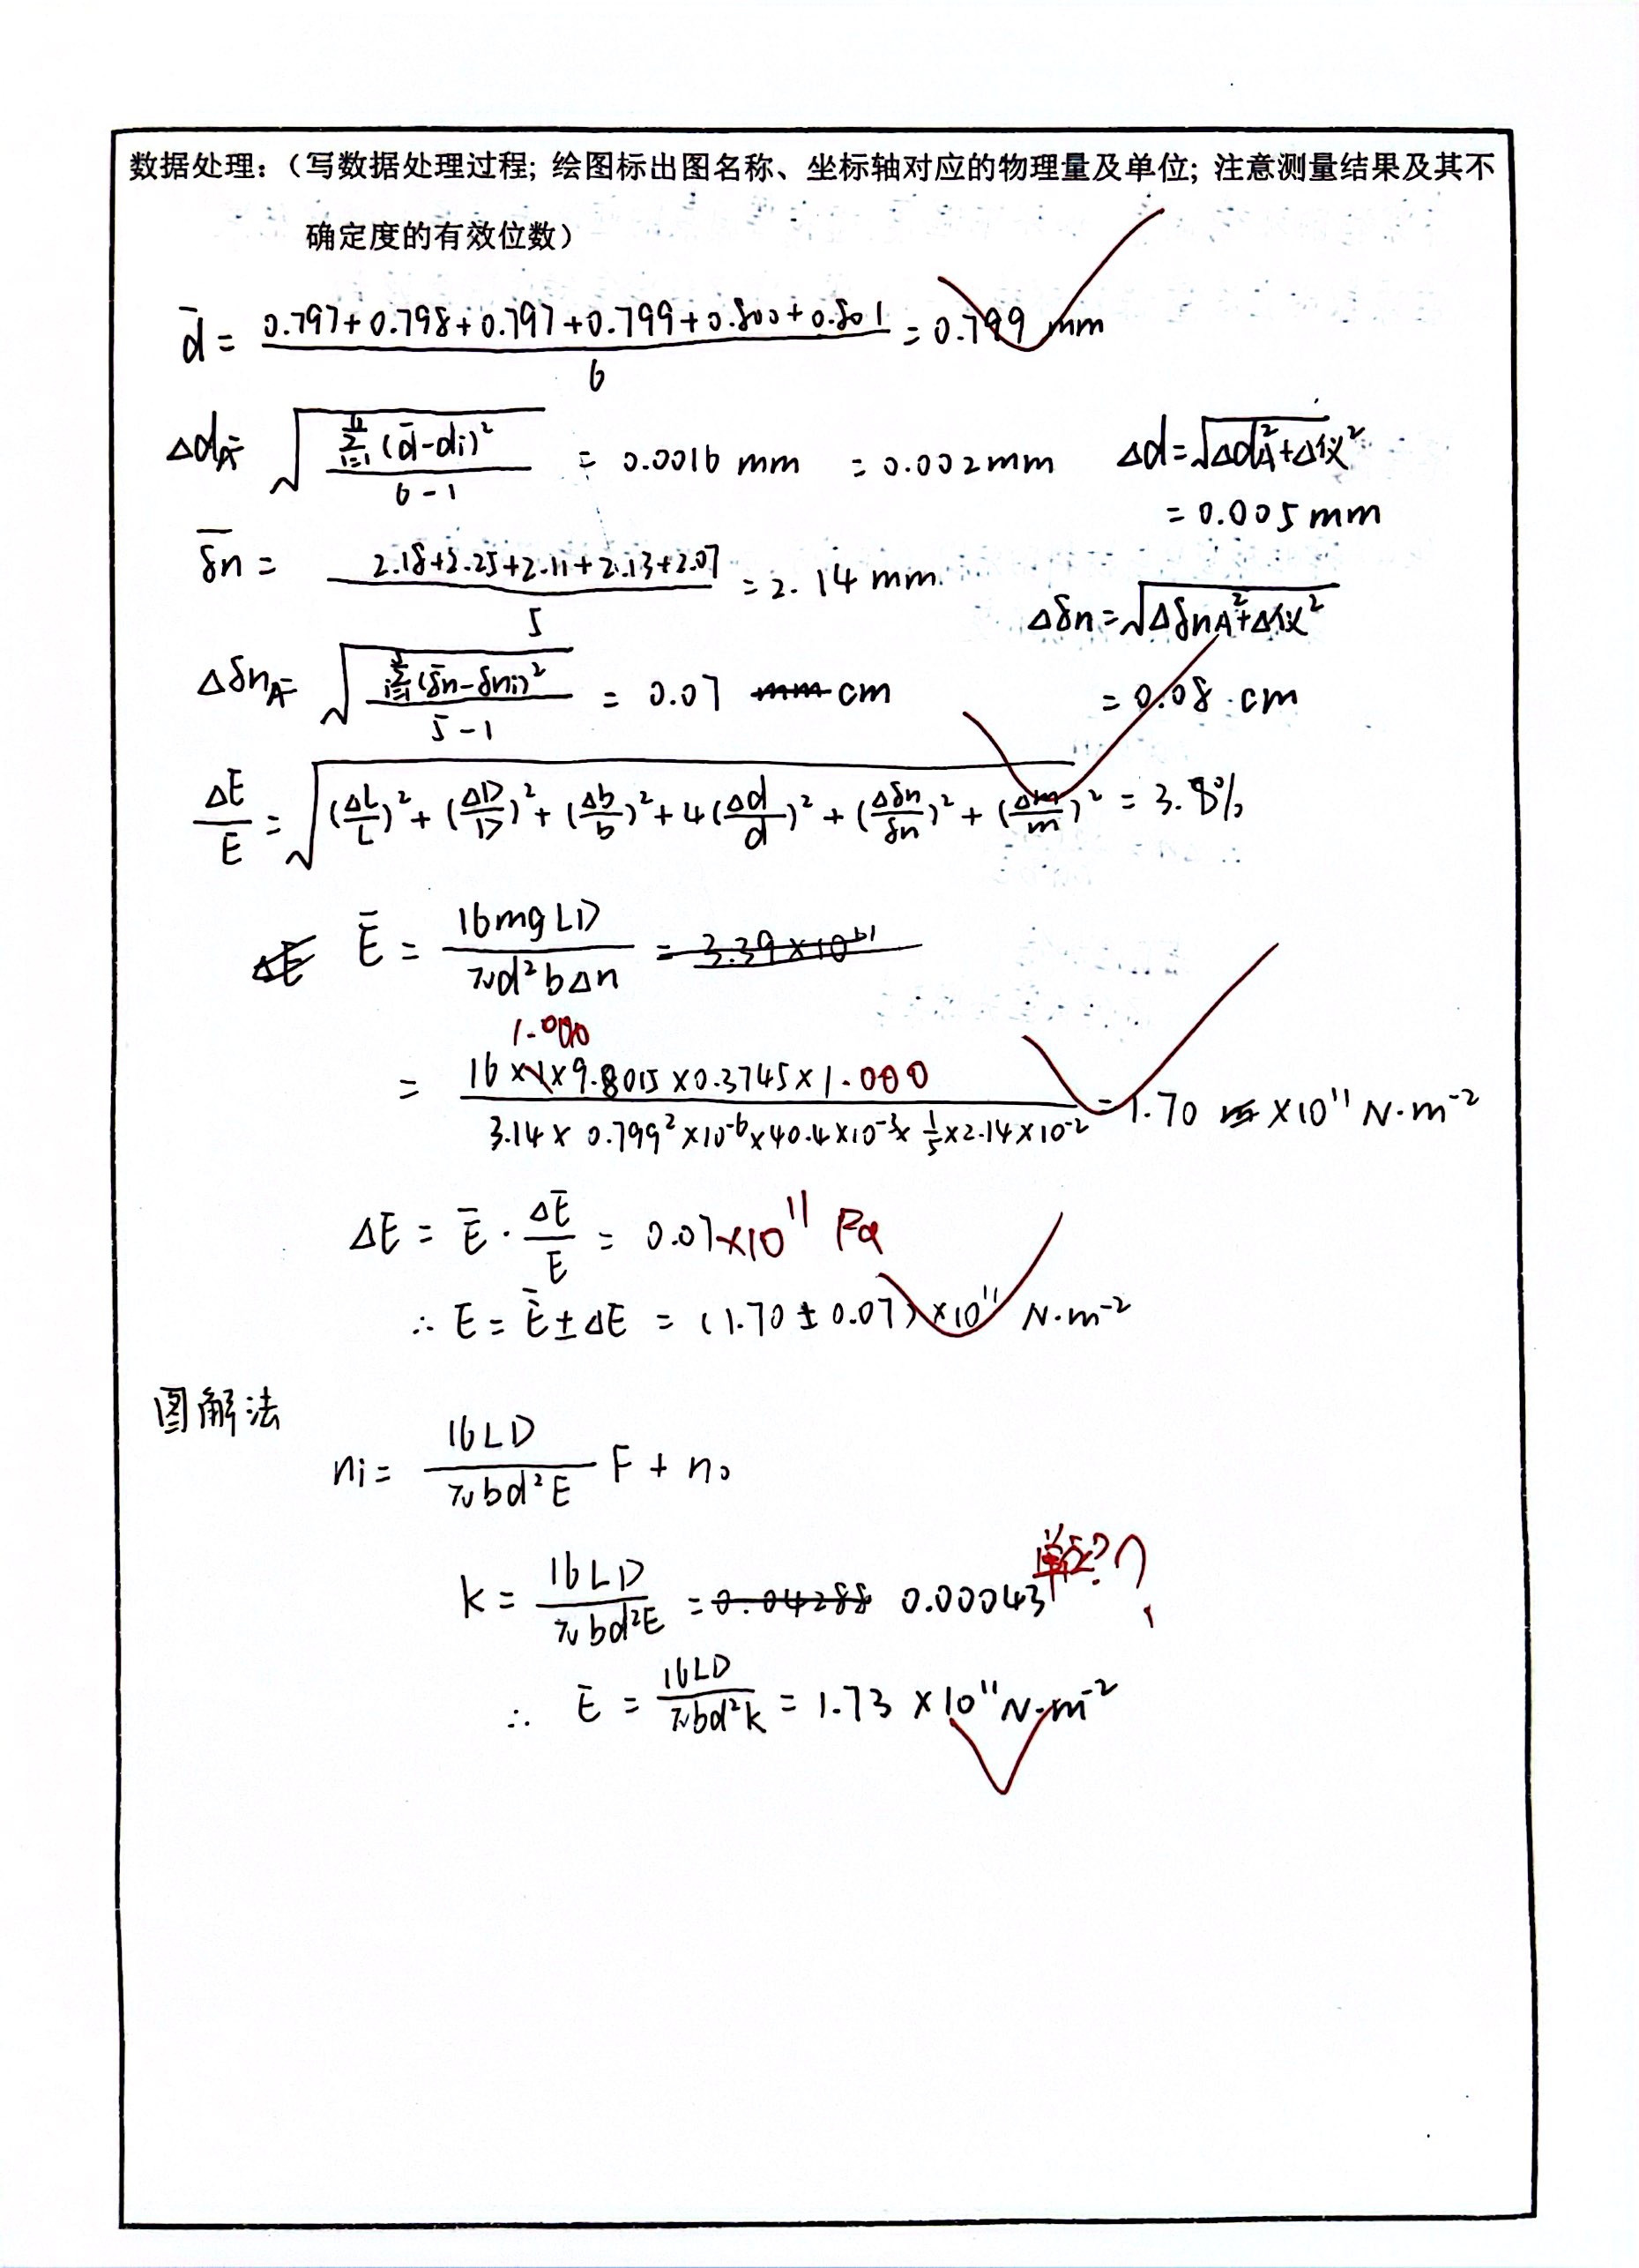 数据处理：（写数据处理过程; 绘图标出图名称、坐标轴对应的物理量及单位; 注意测量结果及其不
确定度的有效位数）
d̄ = (0.797+0.798+0.797+0.799+0.800+0.801)/6 = 0.799 mm
Δd_A = √(Σ_{i=1}^{6}(d̄-di)²/(6-1)) = 0.0016 mm = 0.002mm Δd=√(Δd_A²+Δ仪²)
= 0.005 mm
δn̄ = (2.18+2.25+2.11+2.13+2.07)/5 = 2.14 mm
Δδn=√(Δδn_A²+Δ仪²)
Δδn_A = √(Σ_{i=1}^{5}(δn̄-δni)²/(5-1)) = 0.07 mm cm = 0.08 cm
ΔE/E = √((ΔL/L)²+(ΔD/D)²+(Δb/b)²+4(Δd/d)²+(Δδn/δn)²+(Δm/m)²) = 3.8%
ΔE Ē = 16mgLD/(πd²bΔn) = 3.39×10¹¹
1.000
= (16×1×9.8015×0.3745×1.000)/(3.14×0.799²×10⁻⁶×40.4×10⁻³×1/5×2.14×10⁻²) = 1.70 ×10¹¹ N·m⁻²
ΔE = Ē·ΔĒ/E = 0.07×10¹¹ Pa
∴ E = Ē±ΔE = (1.70±0.07)×10¹¹ N·m⁻²
图解法
ni = 16LD/(πbd²E) F + n₀
单位??
k = 16LD/(πbd²E) = 0.04288 0.00043
∴ Ē = 16LD/(πbd²k) = 1.73 ×10¹¹ N·m⁻²